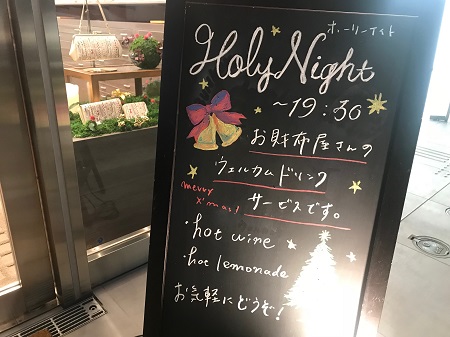 ホーリーナイト
Holy Night
～19:30
お財布屋さんの
ウェルカムドリンク
merry
x'mas!
サービスです。
・hot wine
・hot lemonade
お気軽にどうぞ!